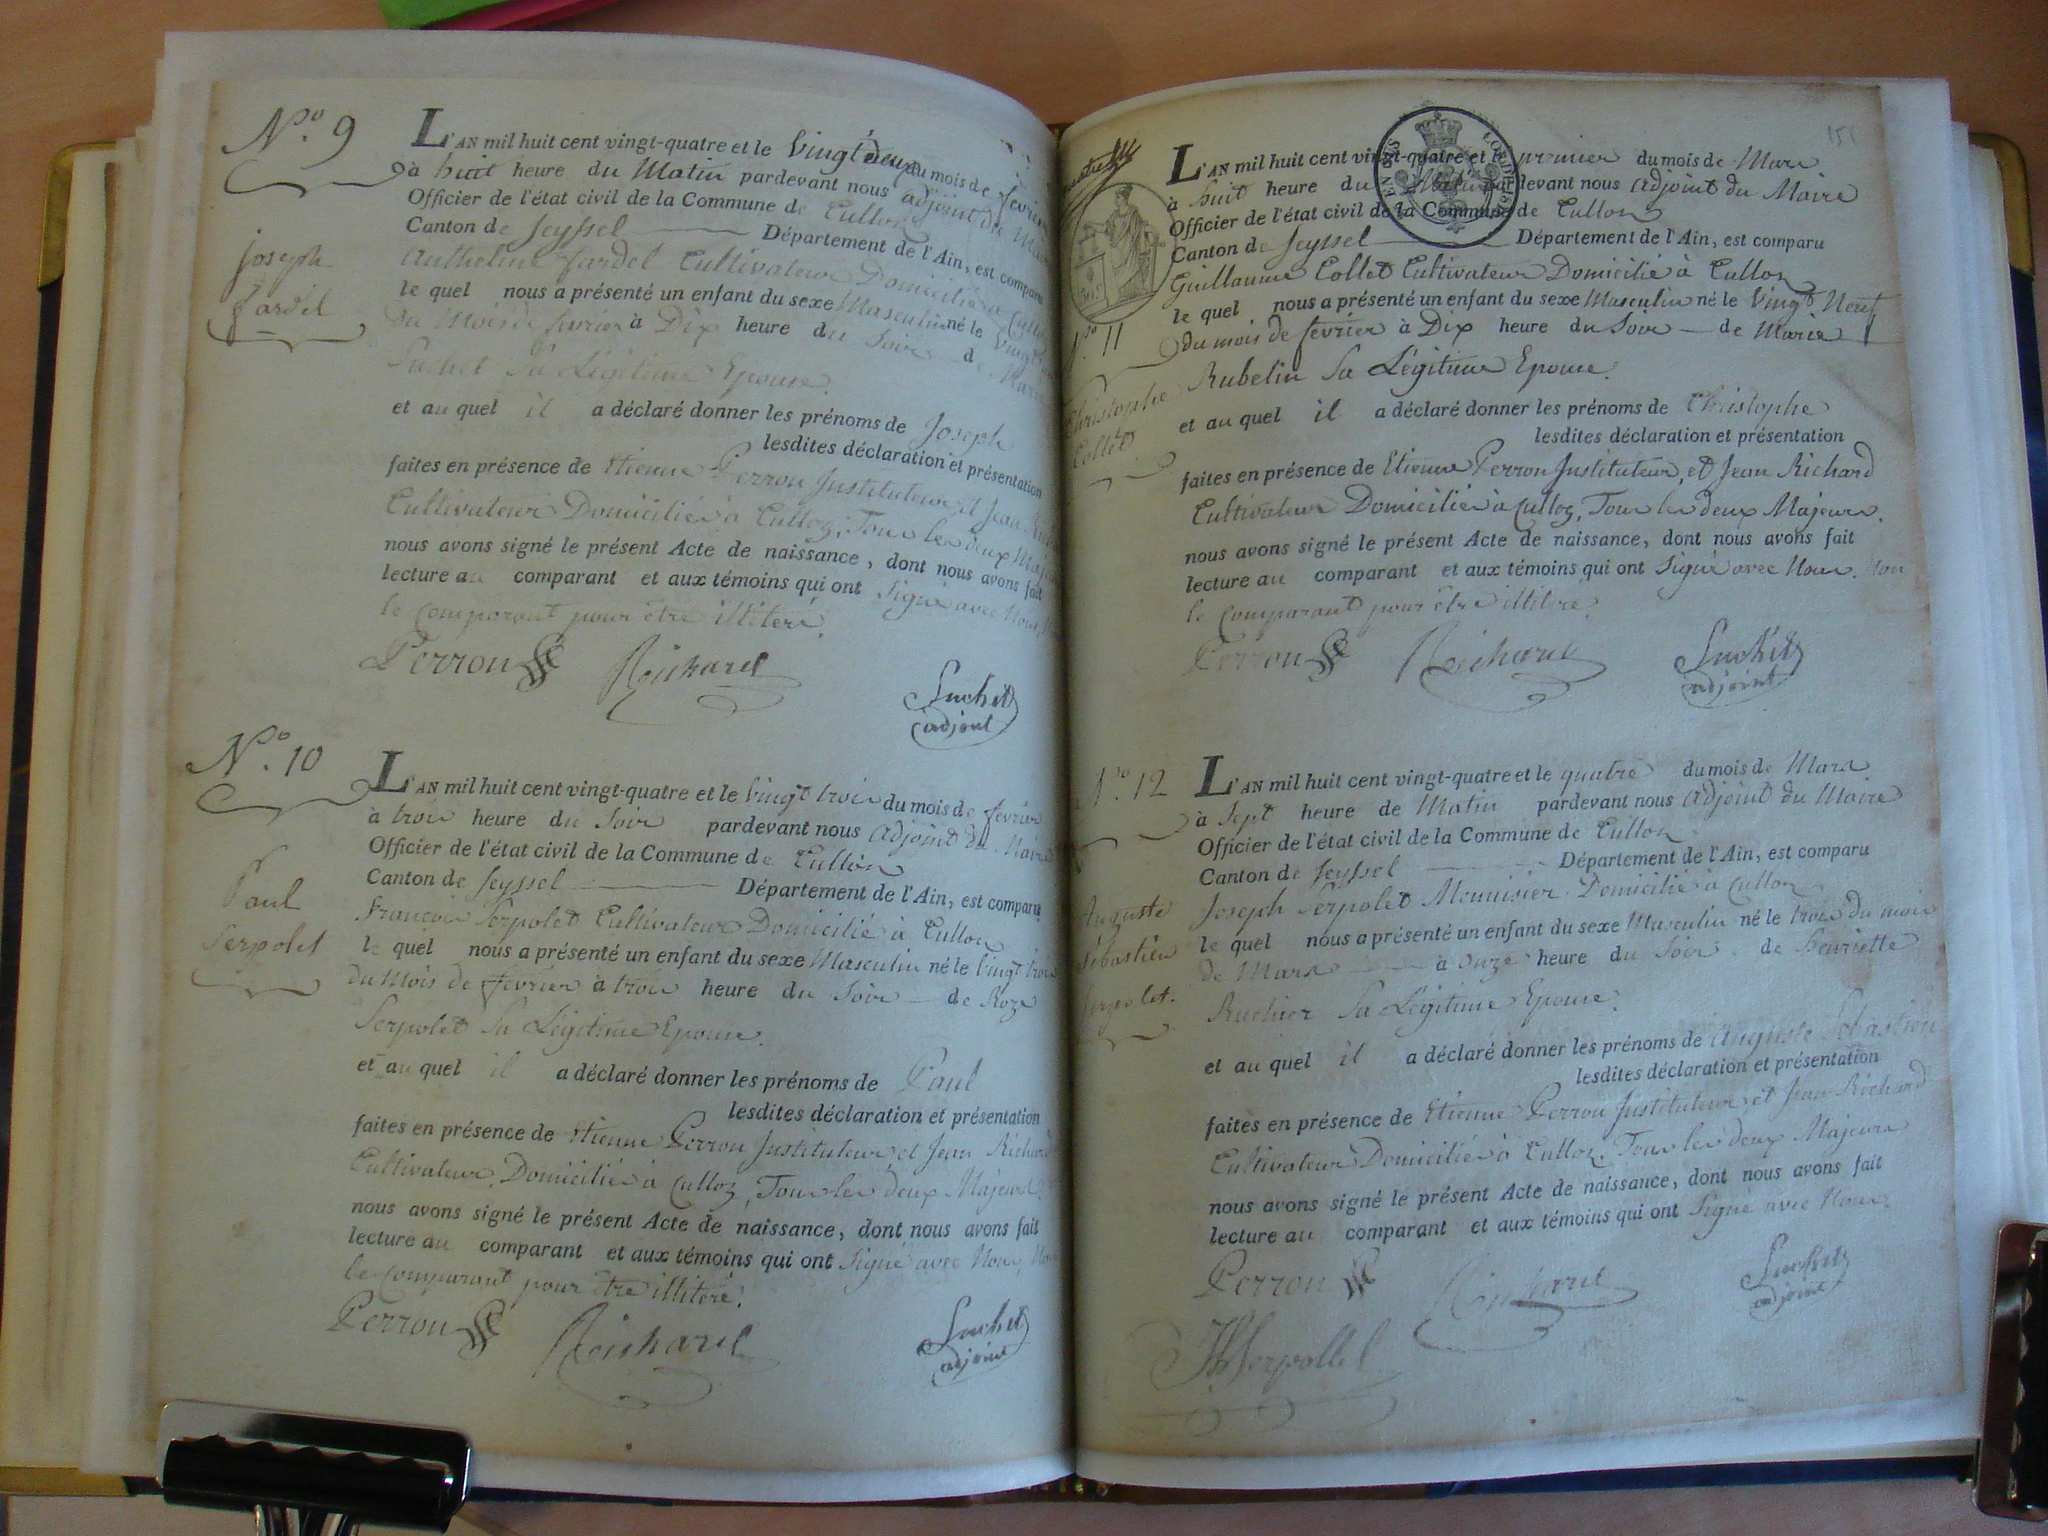 N.º 9
Joseph
Jardel
L'AN mil huit cent vingt-quatre et le Vingt deux du mois de février
à huit heure du Matin pardevant nous adjoint du
Officier de l'état civil de la Commune de Culloz
Canton de Seyssel Département de l'Ain, est comparu
Anthelme Jardel Cultivateur Domicilié à Culloz
le quel nous a présenté un enfant du sexe Masculin né le Vingt
du Mois de février à Dix heure du Soir de Marie
Suchet Sa Légitime Epouse.
et au quel il a déclaré donner les prénoms de Joseph
lesdites déclaration et présentation
faites en présence de Etienne Perron Instituteur, et Jean
Cultivateur Domiciliés à Culloz, Tous les deux
nous avons signé le présent Acte de naissance, dont nous avons fait
lecture au comparant et aux témoins qui ont Signé avec Nous,
le Comparant pour être illiteré.
Perron Richard Suchet
adjoint
N.º 10
Paul
Serpolet
L'AN mil huit cent vingt-quatre et le Vingt trois du mois de février
à trois heure du Soir pardevant nous adjoint du Maire
Officier de l'état civil de la Commune de Culloz
Canton de Seyssel Département de l'Ain, est comparu
François Serpolet Cultivateur Domicilié à Culloz
le quel nous a présenté un enfant du sexe Masculin né le Vingt trois
du Mois de février à trois heure du Soir de Roze
Serpolet Sa Légitime Epouse.
et au quel il a déclaré donner les prénoms de Paul
lesdites déclaration et présentation
faites en présence de Etienne Perron Instituteur, et Jean Richard
Cultivateur, Domiciliés à Culloz, Tous les deux Majeurs
nous avons signé le présent Acte de naissance, dont nous avons fait
lecture au comparant et aux témoins qui ont Signé avec Nous, Non
le Comparant pour être illiteré.
Perron Richard Suchet
adjoint
151
N.º 11
Christophe
Collet
L'AN mil huit cent vingt-quatre et le premier du mois de Mars
à huit heure du Matin pardevant nous adjoint du Maire
Officier de l'état civil de la Commune de Culloz
Canton de Seyssel Département de l'Ain, est comparu
Guillaume Collet Cultivateur Domicilié à Culloz
le quel nous a présenté un enfant du sexe Masculin né le Vingt Neuf
du mois de février à Dix heure du Soir de Marie
Rubelin Sa Légitime Epouse.
et au quel il a déclaré donner les prénoms de Christophe
lesdites déclaration et présentation
faites en présence de Etienne Perron Instituteur, et Jean Richard
Cultivateur Domiciliés à Culloz, Tous les deux Majeurs.
nous avons signé le présent Acte de naissance, dont nous avons fait
lecture au comparant et aux témoins qui ont Signé avec Nous. Non
le Comparant pour être illitere.
Perron Richard Suchet
adjoint
N.º 12
Auguste
Sébastien
Serpolet.
L'AN mil huit cent vingt-quatre et le quatre du mois de Mars
à Sept heure de Matin pardevant nous adjoint du Maire
Officier de l'état civil de la Commune de Culloz
Canton de Seyssel Département de l'Ain, est comparu
Joseph Serpolet Menuisier Domicilié à Culloz
le quel nous a présenté un enfant du sexe Masculin né le trois du mois
de Mars à Onze heure du Soir de Henriette
Sa Légitime Epouse.
et au quel il a déclaré donner les prénoms de Auguste Sébastien
lesdites déclaration et présentation
faites en présence de Etienne Perron Instituteur, et Jean Richard
Cultivateur Domiciliés à Culloz, Tous les deux Majeurs
nous avons signé le présent Acte de naissance, dont nous avons fait
lecture au comparant et aux témoins qui ont Signé avec Nous.
Perron Richard Suchet
adjoint
Serpollet